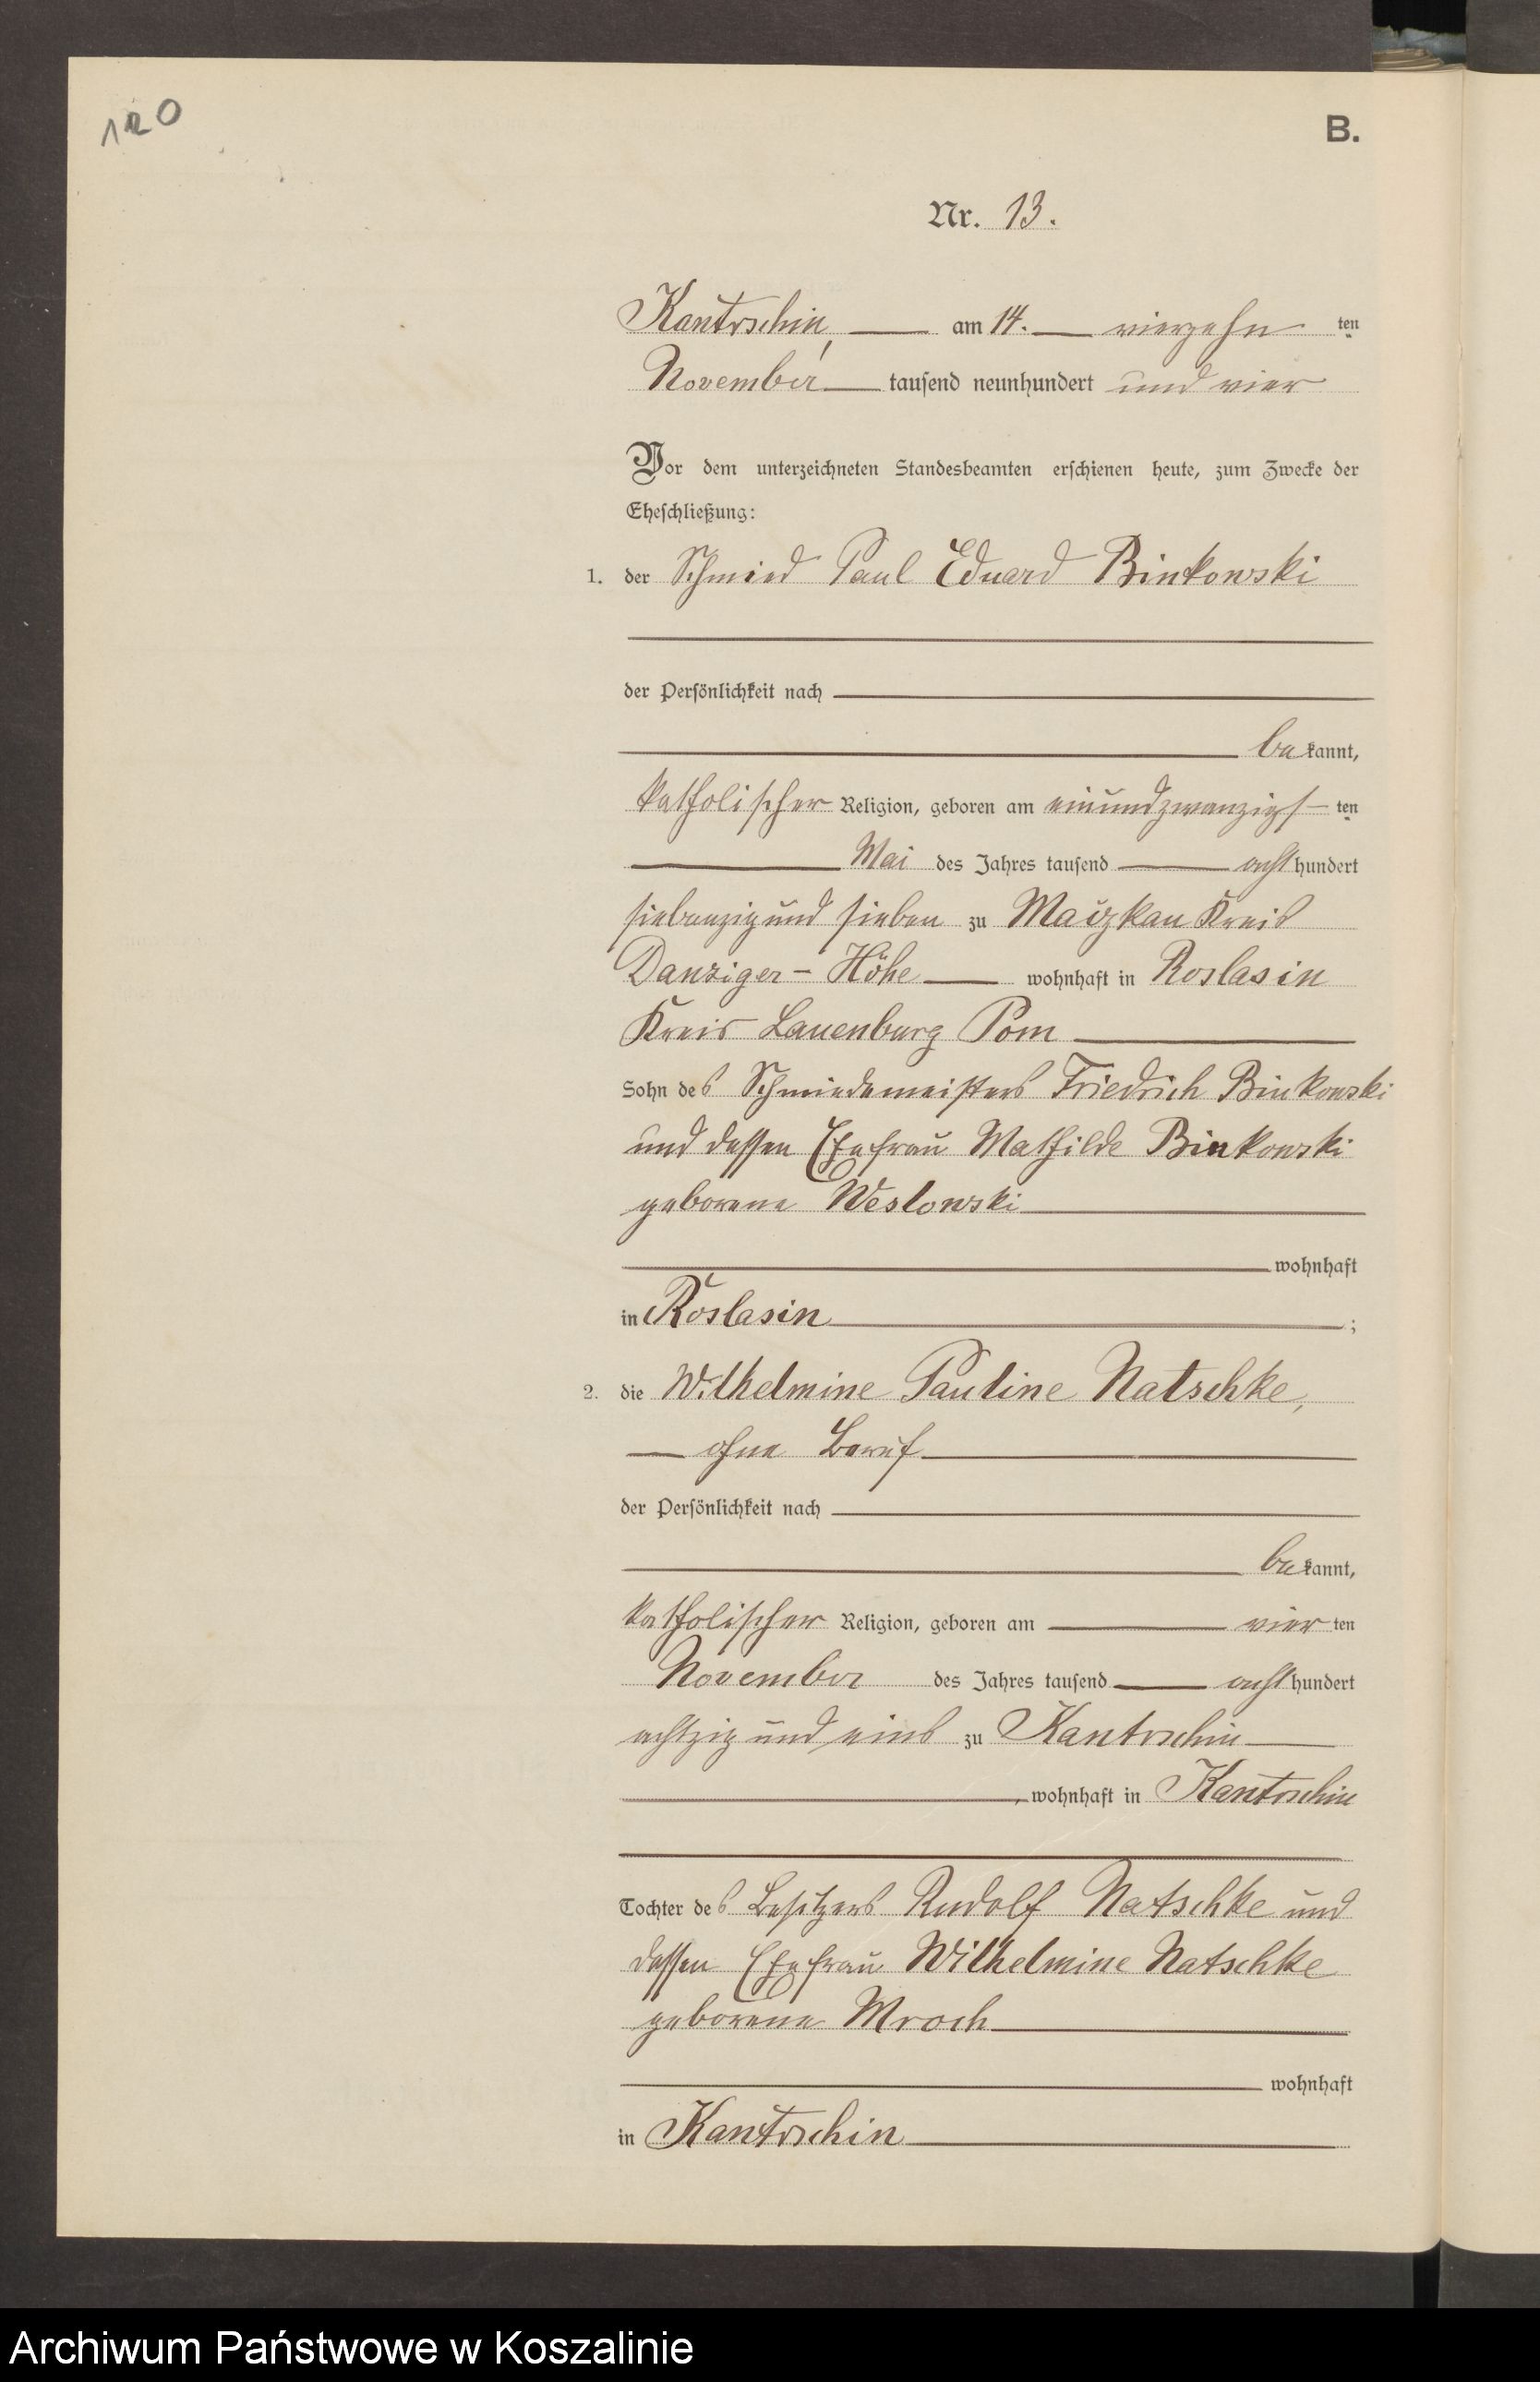 120
B.
Nr. 13.
Kantrschin, am 14. vierzehn ten
November tausend neunhundert und vier
Vor dem unterzeichneten Standesbeamten erschienen heute, zum Zwecke der
Eheschließung:
1. der Schmied Paul Eduard Binkowski
der Persönlichkeit nach
be kannt,
katholischer Religion, geboren am einundzwanzigs- ten
Mai des Jahres tausend acht hundert
siebenzig und sieben zu Kreis
Danziger-Höhe wohnhaft in Roslasin
Kreis Lauenburg Pom
Sohn des Schmiedemeisters Friedrich Binkowski
und dessen Ehefrau Mathilde Binkowski
geborene Weslowski
wohnhaft
in Roslasin ;
2. die Wilhelmine Pauline Natschke,
ohne Beruf
der Persönlichkeit nach
be kannt,
katholischer Religion, geboren am vier ten
November des Jahres tausend acht hundert
achtzig und eins zu Kantrschin
, wohnhaft in Kantrschin
Tochter des Besitzers Rudolf Natschke und
dessen Ehefrau Wilhelmine Natschke
geborene Mroch
wohnhaft
in Kantrschin
Archiwum Państwowe w Koszalinie